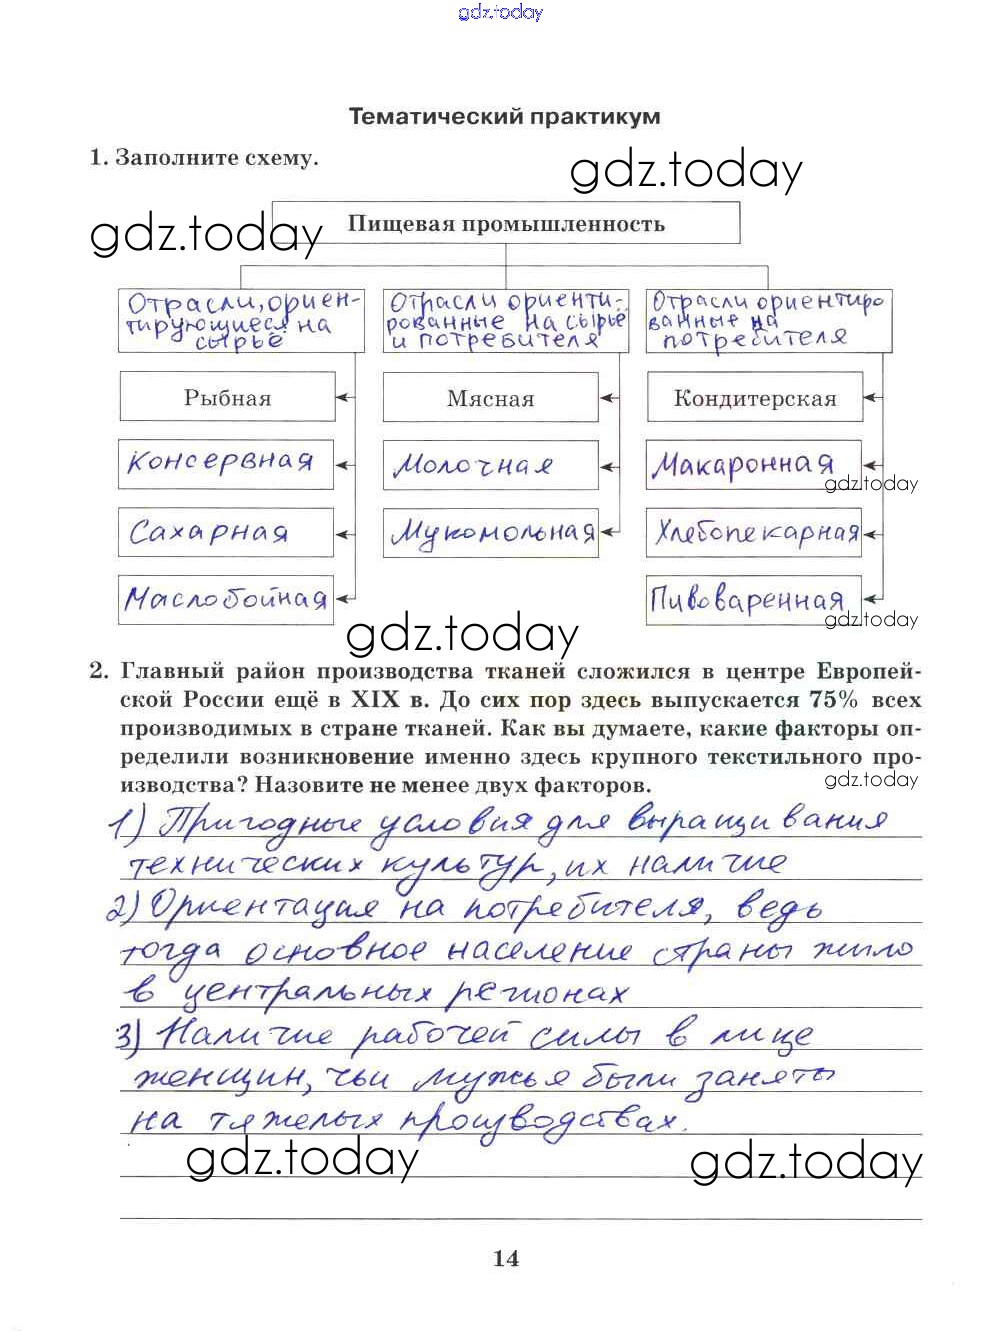 gdz.today
Тематический практикум
1. Заполните схему.
gdz.today
gdz.today
Пищевая промышленность
Отрасли, ориен-
тирующиеся на
сырьё
Отрасли ориенти-
рованные на сырьё
и потребителя
Отрасли ориентиро
ванные на
потребителя
Рыбная
Мясная
Кондитерская
Консервная
Молочная
Макаронная
gdz.today
Сахарная
Мукомольная
Хлебопекарная
Маслобойная
Пивоваренная
gdz.today
gdz.today
2. Главный район производства тканей сложился в центре Европей-
ской России ещё в XIX в. До сих пор здесь выпускается 75% всех
производимых в стране тканей. Как вы думаете, какие факторы оп-
ределили возникновение именно здесь крупного текстильного про-
изводства? Назовите не менее двух факторов.
gdz.today
1) Пригодные условия для выращивания
технических культур, их наличие
2) Ориентация на потребителя, ведь
тогда основное население страны жило
в центральных регионах
3) Наличие рабочей силы в лице
женщин, чьи мужья были заняты
на тяжелых производствах.
gdz.today
gdz.today
14